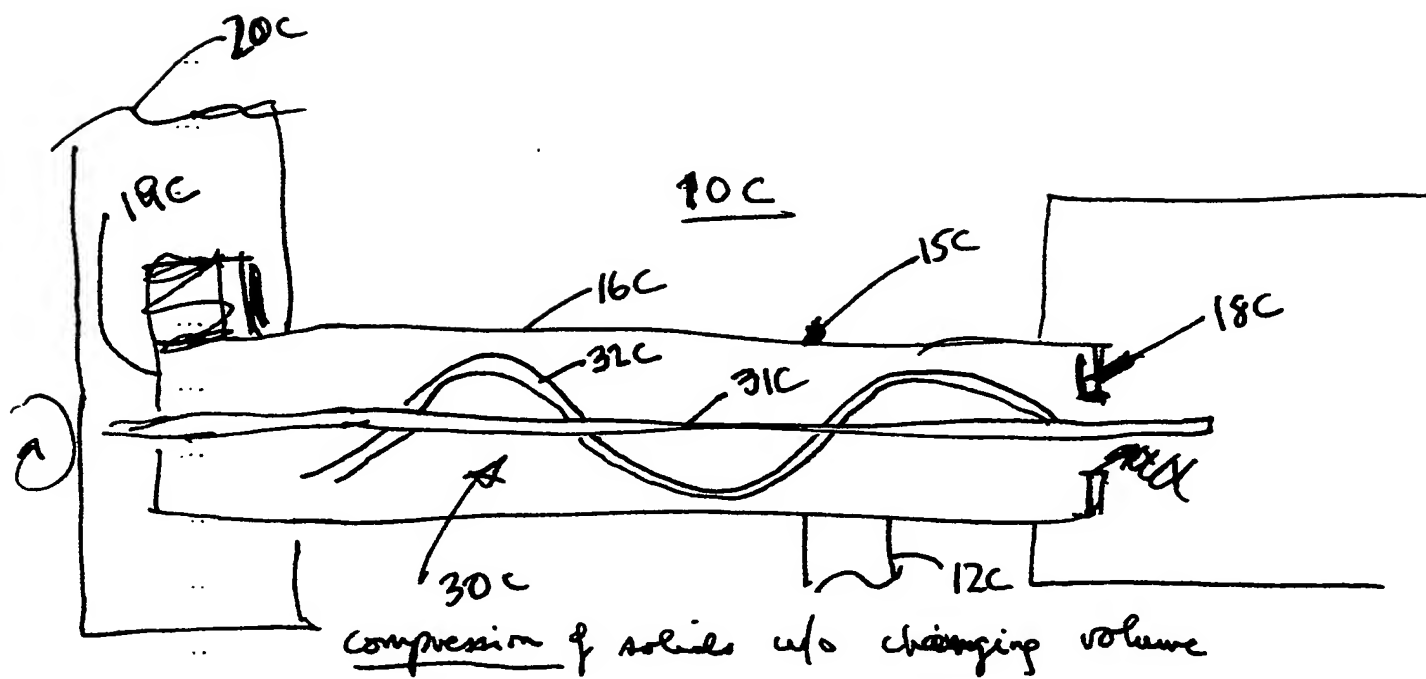 20C
19C
10C
15C
16C
18C
32C
31C
a
30C
12C
compression of solids w/o changing volume